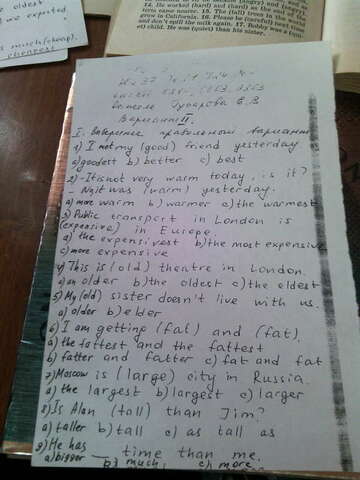 oldest
we expected.
is much (cheap).
cheapest
(angry) and
14. He worked (hard) and (hard) as the end of the
term came nearer. 15. The (tall) trees in the world
grow in California. 16. Please be (careful) next time
and don't spill the milk again. 17. Bobby was a
child. He was (quiet) than his sister.
Вариант II.
I. Выберите правильный вариант
1) I met my (good) friend yesterday
a) goodest b) better c) best
2) - It is not very warm today, is it?
- No, it was (warm) yesterday.
a) more warm b) warmer c) the warmest
3) Public transport in London is
(expensive) in Europe.
a) the expensivest b) the most expensive
c) more expensive
4) This is (old) theatre in London.
a) an older b) the oldest c) the eldest
5) My (old) sister doesn't live with us.
a) older b) elder
6) I am getting (fat) and (fat).
a) the fattest and the fattest
b) fatter and fatter c) fat and fat
7) Moscow is (large) city in Russia.
a) the largest b) largest c) larger
8) Is Alan (tall) than Jim?
a) taller b) tall c) as tall as
9) He has __ time than me.
a) bigger b) much c) more